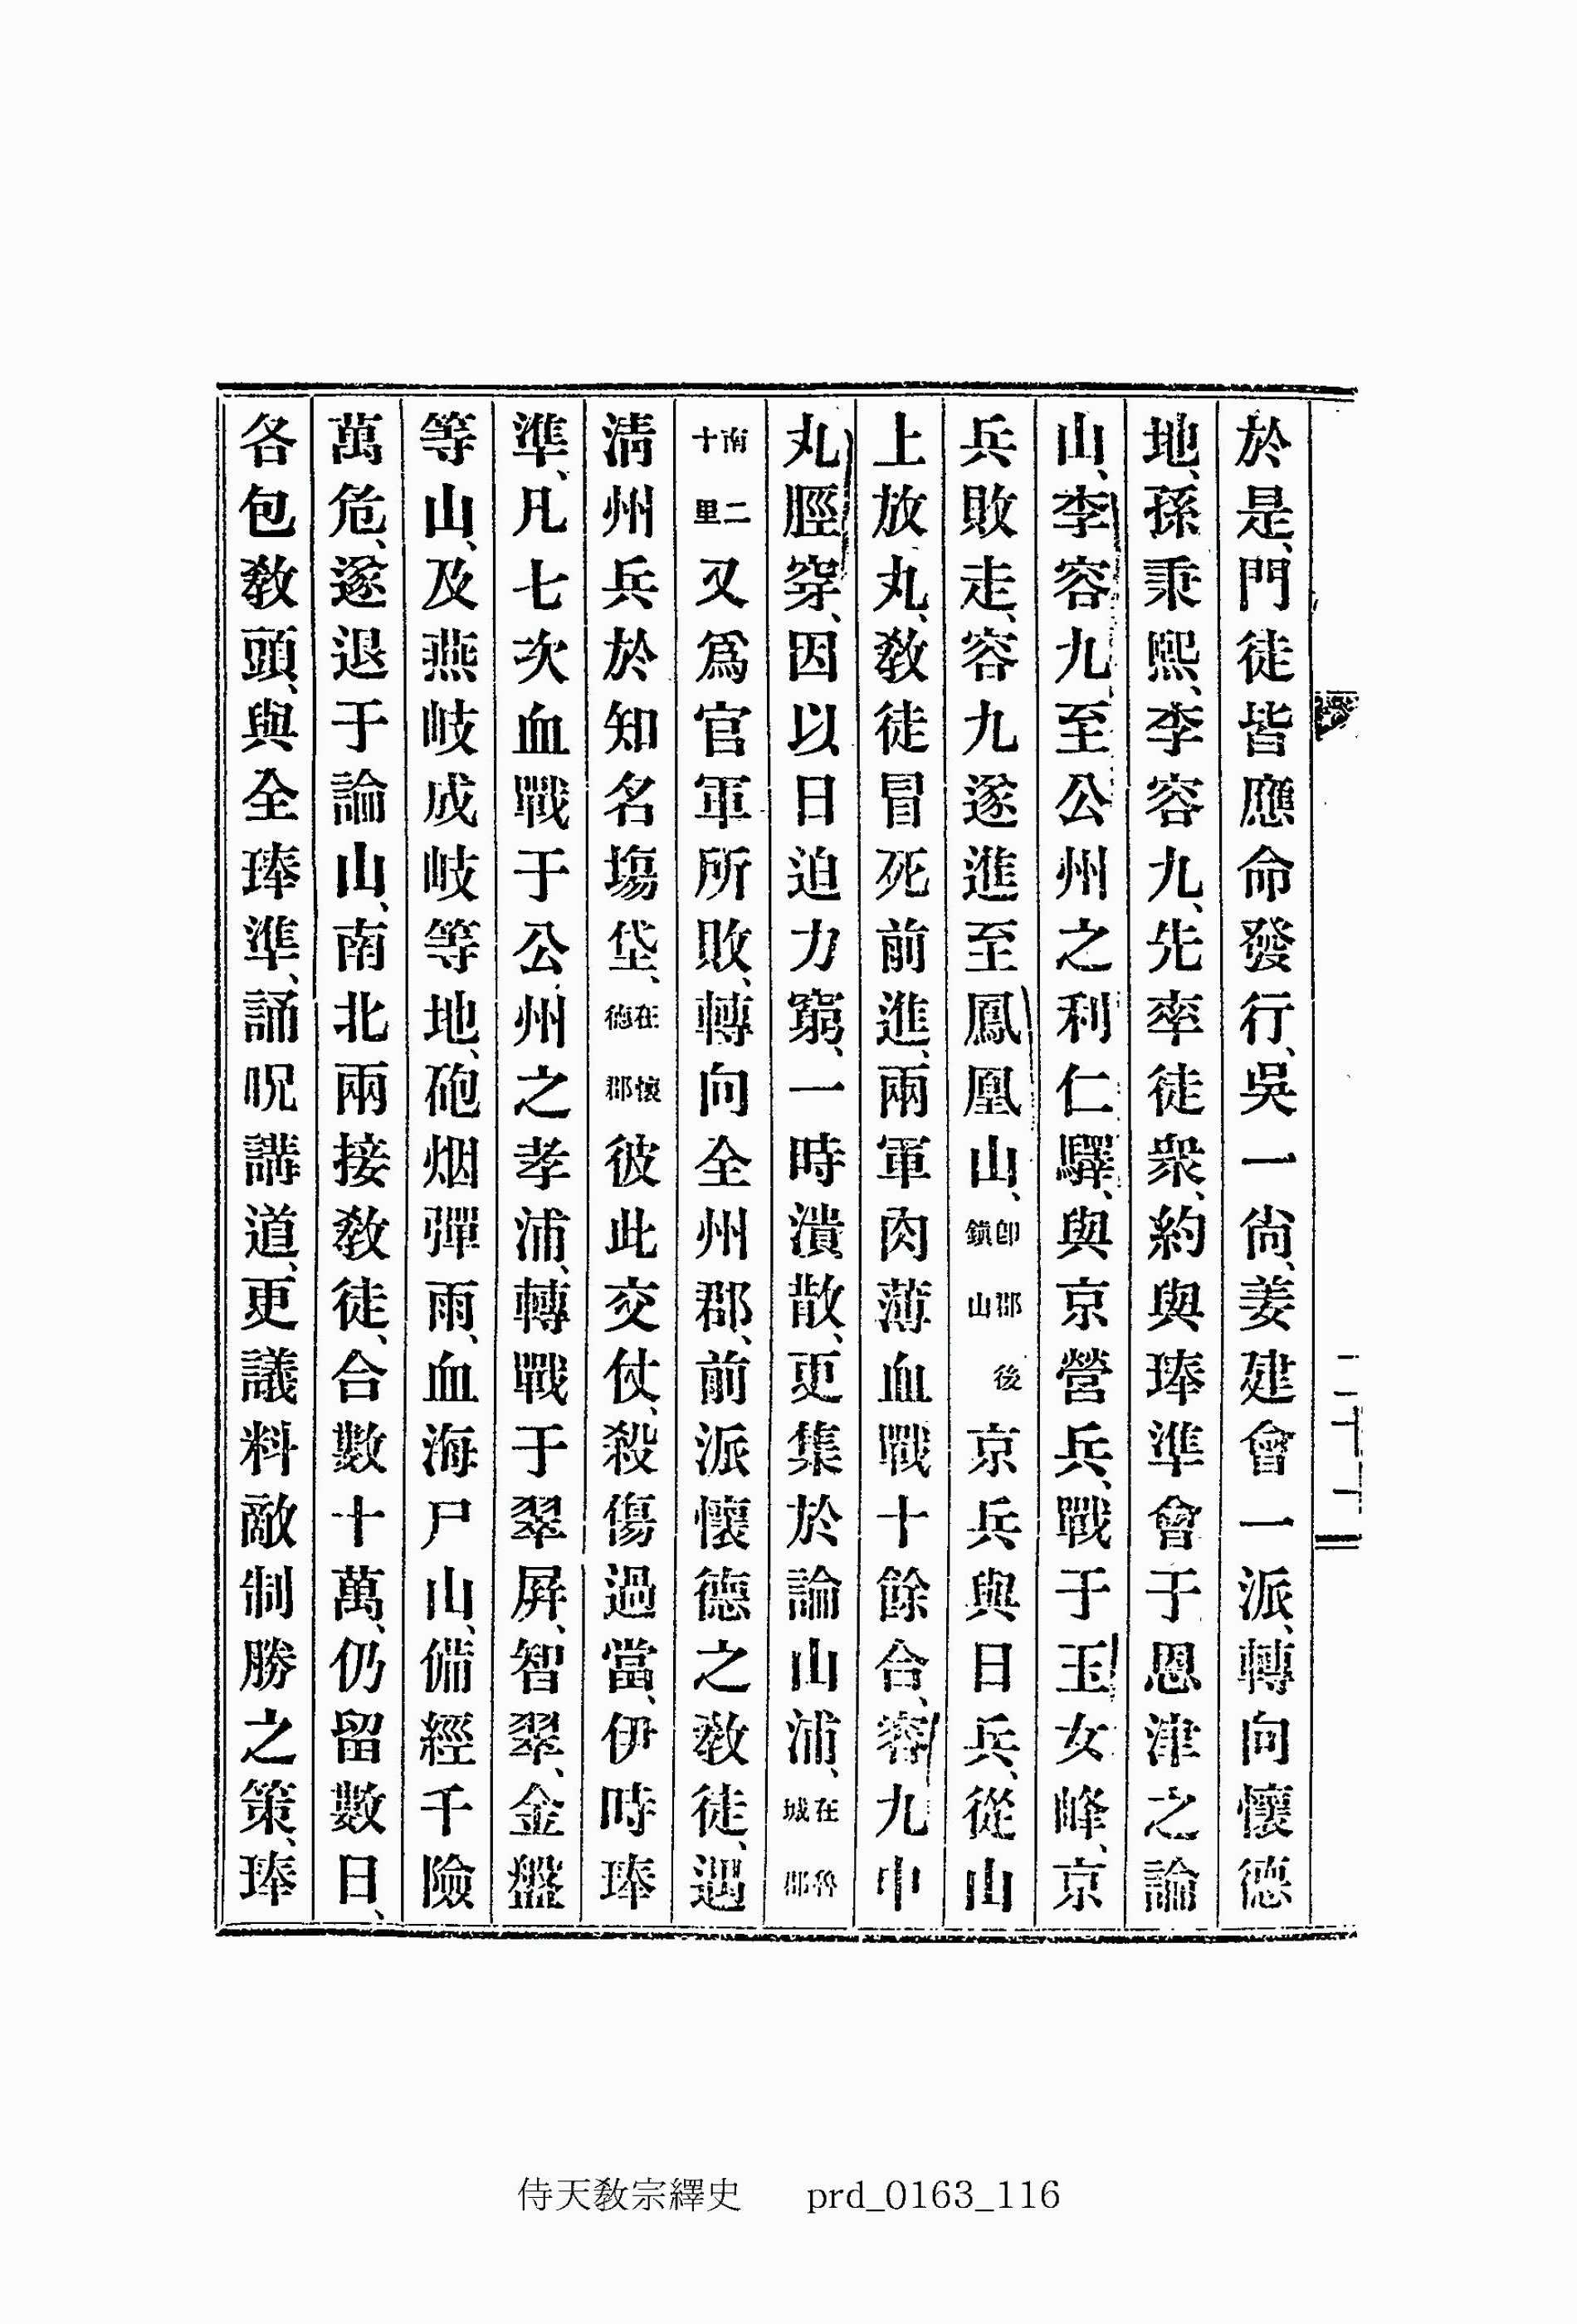 於是、門徒皆應命發行、吳一尙、姜建會一派、轉向懷德
地、孫秉熙、李容九、先率徒衆、約與琫準會于恩津之論
山、李容九至公州之利仁驛、與京營兵、戰于玉女峰、京
兵敗走、容九遂進至鳳凰山、卽郡後鎭山京兵與日兵、從山
上放丸、敎徒冒死前進、兩軍肉薄血戰十餘合、容九中
丸脛穿、因以日迫力窮、一時潰散、更集於論山浦、在魯城郡
南二十里又爲官軍所敗、轉向全州郡、前派懷德之敎徒、遇
淸州兵於知名塲垈、在懷德郡彼此交仗、殺傷過當、伊時琫
準、凡七次血戰于公州之孝浦、轉戰于翠屛、智翠、金盤
等山、及燕岐成岐等地、砲烟彈雨、血海尸山、備經千險
萬危、遂退于論山、南北兩接敎徒、合數十萬、仍留數日、
各包敎頭、與全琫準、誦呪講道、更議料敵制勝之策、琫
侍天敎宗繹史 prd_0163_116